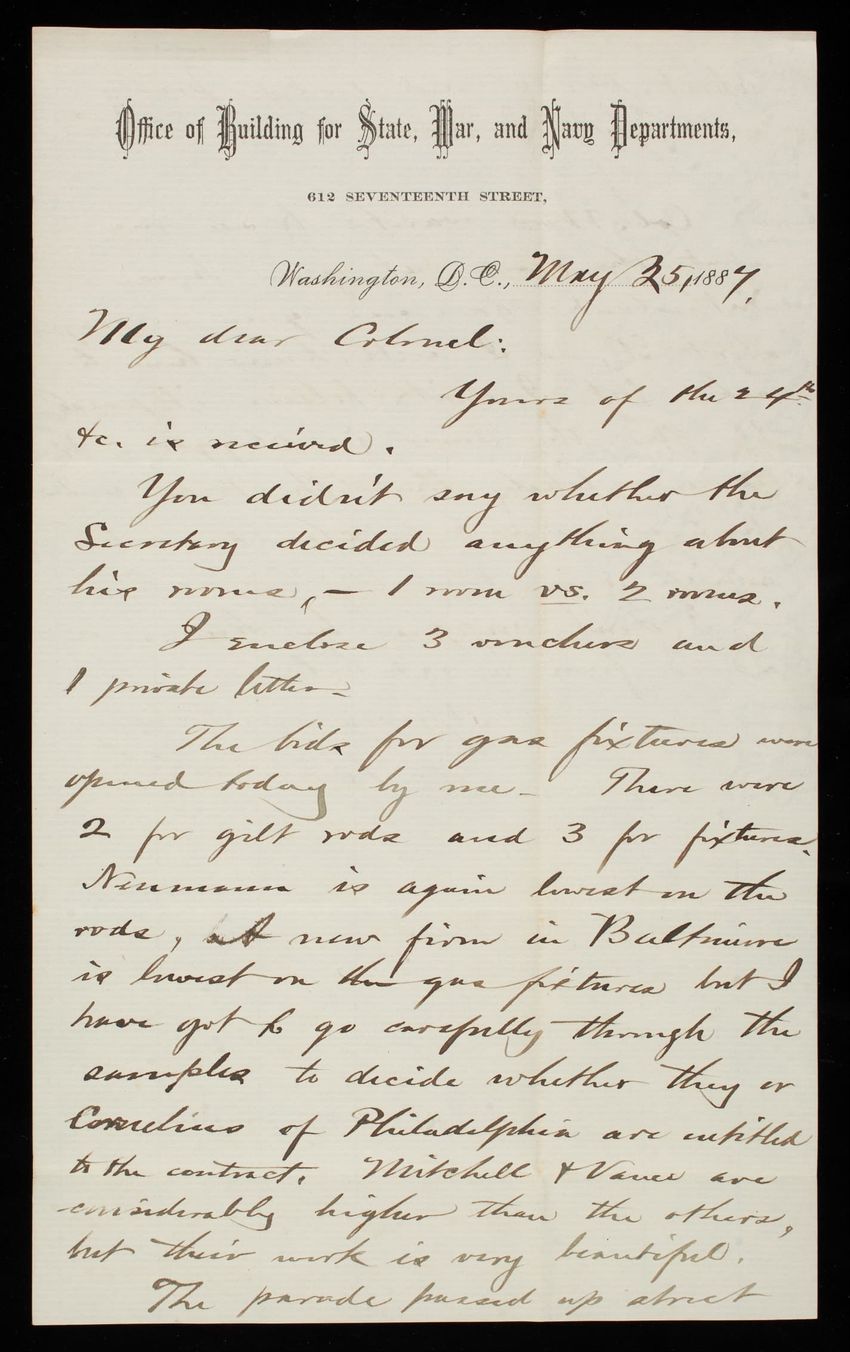 Office of Building for State, War, and Navy Departments,
612 SEVENTEENTH STREET,
Washington, D.C., May 25, 1887,
My dear Colonel:
Yours of the 24th
&c. is received.
You didn't say whether the
Secretary decided anything about
his rooms, — 1 room vs. 2 rooms.
I enclose 3 vouchers and
1 private letter—
The bids for gas fixtures were
opened today by me— There were
2 for gilt rods and 3 for fixtures.
Neumann is again lowest on the
rods, A new firm in Baltimore
is lowest on the gas fixtures but I
have got to go carefully through the
samples to decide whether they or
Cornelius of Philadelphia are entitled
to the contract. Mitchell & Vance are
considerably higher than the others,
but their work is very beautiful.
The parade passed up street